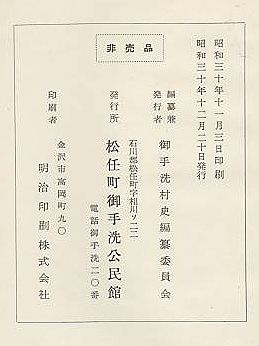 昭和三十年十一月三日印刷
昭和三十年十二月二十日発行
非売品
編纂兼
発行者
御手洗村史編纂委員会
発行所
石川郡松任町字相川ソ二二
松任町御手洗公民館
電話御手洗二〇番
印刷者
金沢市高岡町九〇
明治印刷株式会社